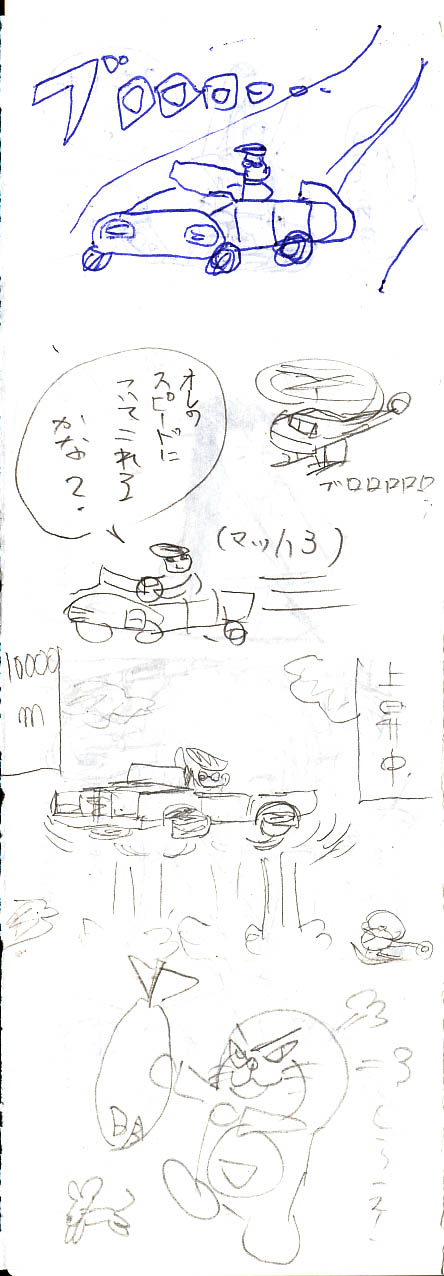 ブロロロロ..
オレの
スピードに
ついてこれる
かな?
ブロロロロロ
(マッハ3)
10000
m
上昇中.